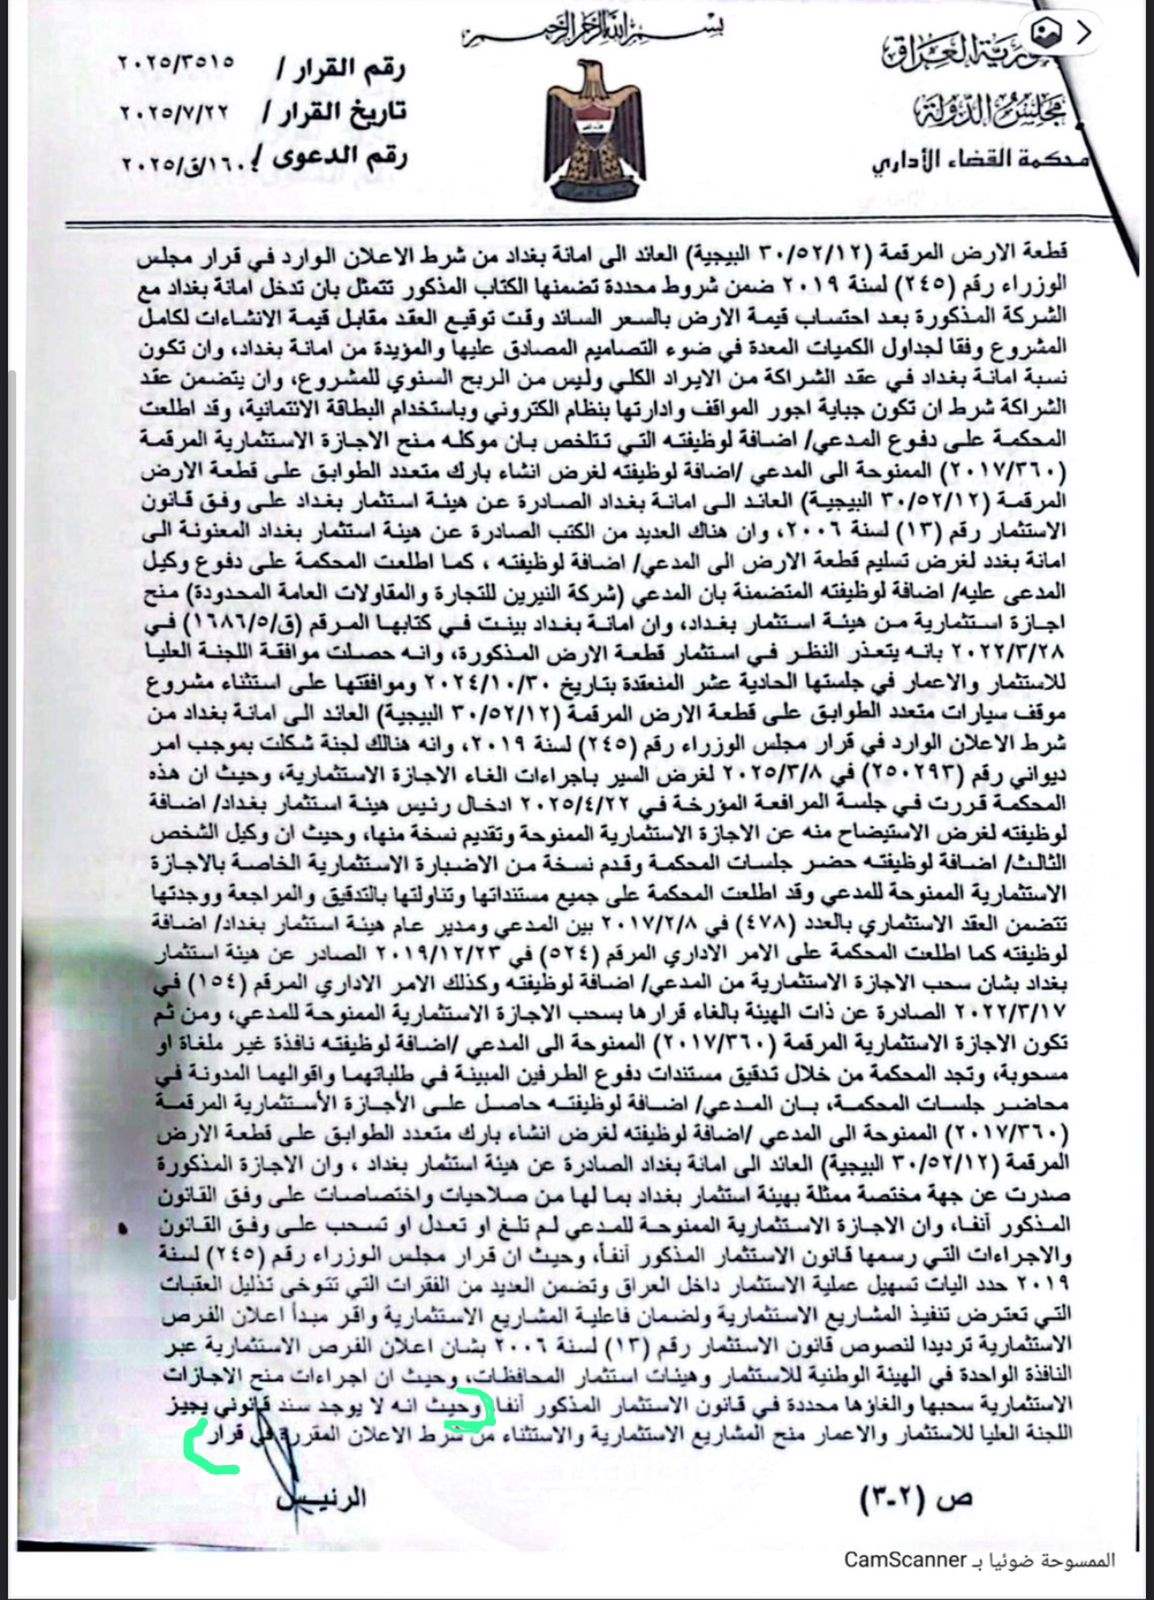 بسم الله الرحمن الرحيم
جمهورية العراق
مجلس الدولة
محكمة القضاء الأداري
رقم القرار / ٢٠٢٥/٣٥١٥
تاريخ القرار / ٢٠٢٥/٧/٢٢
رقم الدعوى / ١٦٠/ق/٢٠٢٥
قطعة الارض المرقمة (٣٠/٥٢/١٢ البيجية) العائد الى امانة بغداد من شرط الاعلان الوارد في قرار مجلس
الوزراء رقم (٢٤٥) لسنة ٢٠١٩ ضمن شروط محددة تضمنها الكتاب المذكور تتمثل بان تدخل امانة بغداد مع
الشركة المذكورة بعد احتساب قيمة الارض بالسعر السائد وقت توقيع العقد مقابل قيمة الانشاءات لكامل
المشروع وفقا لجداول الكميات المعدة في ضوء التصاميم المصادق عليها والمؤيدة من امانة بغداد، وان تكون
نسبة امانة بغداد في عقد الشراكة من الايراد الكلي وليس من الربح السنوي للمشروع، وان يتضمن عقد
الشراكة شرط ان تكون جباية اجور المواقف وادارتها بنظام الكتروني وباستخدام البطاقة الائتمانية، وقد اطلعت
المحكمة على دفوع المدعي/ اضافة لوظيفته التي تتلخص بان موكله منح الاجازة الاستثمارية المرقمة
(٢٠١٧/٣٦٠) الممنوحة الى المدعي /اضافة لوظيفته لغرض انشاء بارك متعدد الطوابق على قطعة الارض
المرقمة (٣٠/٥٢/١٢ البيجية) العائد الى امانة بغداد الصادرة عن هيئة استثمار بغداد على وفق قانون
الاستثمار رقم (١٣) لسنة ٢٠٠٦، وان هناك العديد من الكتب الصادرة عن هيئة استثمار بغداد المعنونة الى
امانة بغدد لغرض تسليم قطعة الارض الى المدعي/ اضافة لوظيفته ، كما اطلعت المحكمة على دفوع وكيل
المدعى عليه/ اضافة لوظيفته المتضمنة بان المدعي (شركة النيرين للتجارة والمقاولات العامة المحدودة) منح
اجازة استثمارية من هيئة استثمار بغداد، وان امانة بغداد بينت في كتابها المرقم (ق/٥/١٦٨٦) في
٢٠٢٢/٣/٢٨ بانه يتعذر النظر في استثمار قطعة الارض المذكورة، وانه حصلت موافقة اللجنة العليا
للاستثمار والاعمار في جلستها الحادية عشر المنعقدة بتاريخ ٢٠٢٤/١٠/٣٠ وموافقتها على استثناء مشروع
موقف سيارات متعدد الطوابق على قطعة الارض المرقمة (٣٠/٥٢/١٢ البيجية) العائد الى امانة بغداد من
شرط الاعلان الوارد في قرار مجلس الوزراء رقم (٢٤٥) لسنة ٢٠١٩، وانه هنالك لجنة شكلت بموجب امر
ديواني رقم (٢٥٠٢٩٣) في ٢٠٢٥/٣/٨ لغرض السير باجراءات الغاء الاجازة الاستثمارية، وحيث ان هذه
المحكمة قررت في جلسة المرافعة المؤرخة في ٢٠٢٥/٤/٢٢ ادخال رئيس هيئة استثمار بغداد/ اضافة
لوظيفته لغرض الاستيضاح منه عن الاجازة الاستثمارية الممنوحة وتقديم نسخة منها، وحيث ان وكيل الشخص
الثالث/ اضافة لوظيفته حضر جلسات المحكمة وقدم نسخة من الاضبارة الاستثمارية الخاصة بالاجازة
الاستثمارية الممنوحة للمدعي وقد اطلعت المحكمة على جميع مستنداتها وتناولتها بالتدقيق والمراجعة ووجدتها
تتضمن العقد الاستثماري بالعدد (٤٧٨) في ٢٠١٧/٢/٨ بين المدعي ومدير عام هيئة استثمار بغداد/ اضافة
لوظيفته كما اطلعت المحكمة على الامر الاداري المرقم (٥٢٤) في ٢٠١٩/١٢/٢٣ الصادر عن هيئة استثمار
بغداد بشان سحب الاجازة الاستثمارية من المدعي/ اضافة لوظيفته وكذلك الامر الاداري المرقم (١٥٤) في
٢٠٢٢/٣/١٧ الصادرة عن ذات الهيئة بالغاء قرارها بسحب الاجازة الاستثمارية الممنوحة للمدعي، ومن ثم
تكون الاجازة الاستثمارية المرقمة (٢٠١٧/٣٦٠) الممنوحة الى المدعي /اضافة لوظيفته نافذة غير ملغاة او
مسحوبة، وتجد المحكمة من خلال تدقيق مستندات دفوع الطرفين المبينة في طلباتهما واقوالهما المدونة في
محاضر جلسات المحكمة، بان المدعي/ اضافة لوظيفته حاصل على الأجازة الأستثمارية المرقمة
(٢٠١٧/٣٦٠) الممنوحة الى المدعي /اضافة لوظيفته لغرض انشاء بارك متعدد الطوابق على قطعة الارض
المرقمة (٣٠/٥٢/١٢ البيجية) العائد الى امانة بغداد الصادرة عن هيئة استثمار بغداد ، وان الاجازة المذكورة
صدرت عن جهة مختصة ممثلة بهيئة استثمار بغداد بما لها من صلاحيات واختصاصات على وفق القانون
المذكور أنفا، وان الاجازة الاستثمارية الممنوحة للمدعي لم تلغ او تعدل او تسحب على وفق القانون
والاجراءات التي رسمها قانون الاستثمار المذكور أنفاً، وحيث ان قرار مجلس الوزراء رقم (٢٤٥) لسنة
٢٠١٩ حدد اليات تسهيل عملية الاستثمار داخل العراق وتضمن العديد من الفقرات التي تتوخى تذليل العقبات
التي تعترض تنفيذ المشاريع الاستثمارية ولضمان فاعلية المشاريع الاستثمارية واقر مبدأ اعلان الفرص
الاستثمارية ترديدا لنصوص قانون الاستثمار رقم (١٣) لسنة ٢٠٠٦ بشان اعلان الفرص الاستثمارية عبر
النافذة الواحدة في الهيئة الوطنية للاستثمار وهيئات استثمار المحافظات، وحيث ان اجراءات منح الاجازات
الاستثمارية سحبها والغاؤها محددة في قانون الاستثمار المذكور أنفا، وحيث انه لا يوجد سند قانوني يجيز
اللجنة العليا للاستثمار والاعمار منح المشاريع الاستثمارية والاستثناء من شرط الاعلان المقررة في قرار
الرئيس
ص (٢-٣)
الممسوحة ضوئيا بـ CamScanner